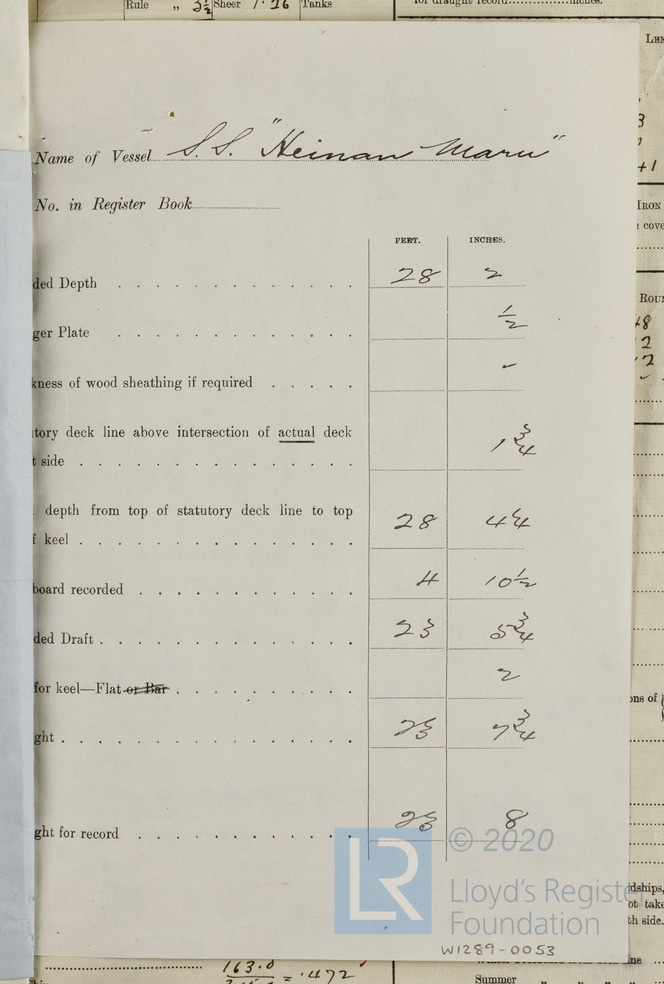 Rule „ 3½ Sheer 1.26 Tanks
for draught record..............inches.
Name of Vessel S.S. "Heinan Maru"
No. in Register Book
FEET. INCHES.
ded Depth 28 2
ger Plate ½
kness of wood sheathing if required ✓
tory deck line above intersection of actual deck
t side 1¾
depth from top of statutory deck line to top
f keel 28 4¼
board recorded 4 10½
ded Draft 23 5¾
for keel—Flat or Bar 2
ght 23 7¾
ght for record 23 8
© 2020
LR
Lloyd's Register
Foundation
W1289-0053
163.0 = .472
Summer
LEN
3
+1
IRON
cove
ROUN
48
2
2
ons of
dships,
ot take
th side.
ne